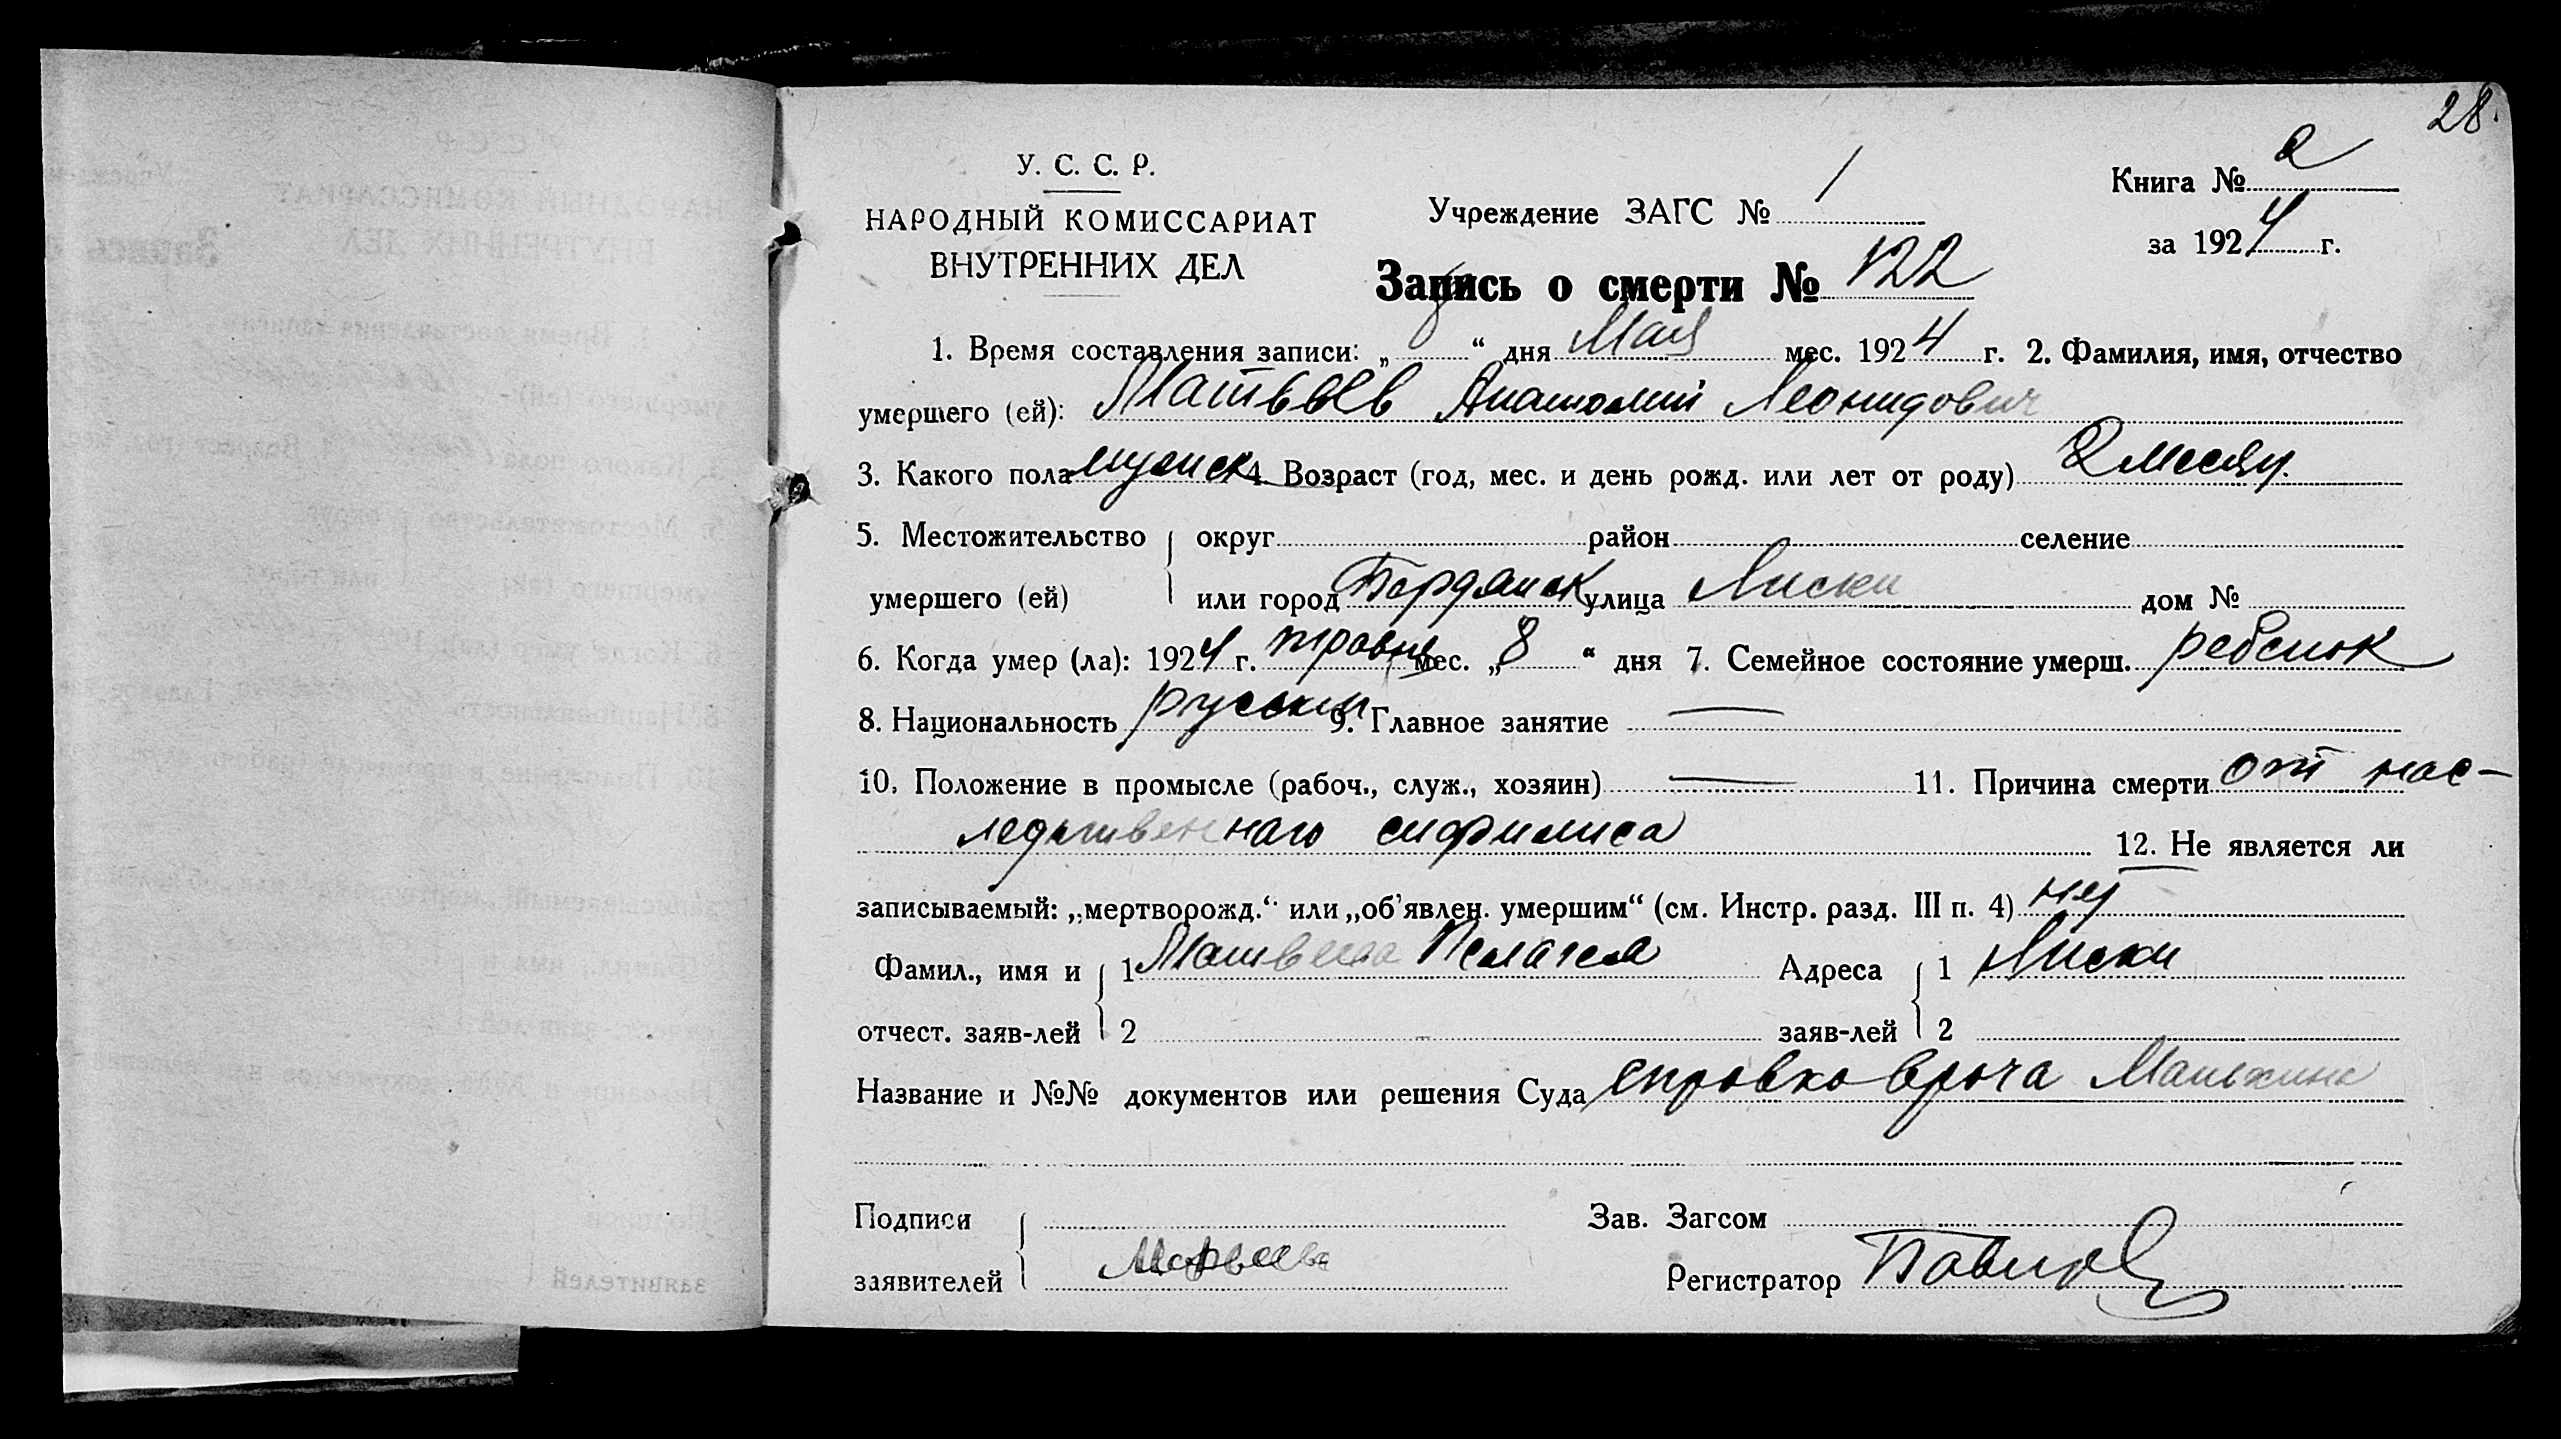 28.
У. С. С. Р.
НАРОДНЫЙ КОМИССАРИАТ
ВНУТРЕННИХ ДЕЛ
Учреждение ЗАГС № 1
Книга № 2
за 1924 г.
Запись о смерти № 122
1. Время составления записи: „ 8 “ дня Мая мес. 1924 г. 2. Фамилия, имя, отчество
умершего (ей): Матвеев Анатолий Леонидович
3. Какого пола мужск 4. Возраст (год, мес. и день рожд. или лет от роду) 2 месяц.
5. Местожительство округ район селение
умершего (ей) или город Бердянск улица Лиски дом №
6. Когда умер (ла): 1924 г. травня мес. „ 8 “ дня 7. Семейное состояние умерш. ребенок
8. Национальность русский 9. Главное занятие —
10. Положение в промысле (рабоч., служ., хозяин) — 11. Причина смерти от нас-
ледственнаго сифилиса 12. Не является ли
записываемый: „мертворожд.“ или „об’явлен. умершим“ (см. Инстр. разд. III п. 4) нет
Фамил., имя и 1 Матвеева Пелагея Адреса 1 Лиски
отчест. заяв-лей 2 заяв-лей 2
Название и №№ документов или решения Суда справка врача
Подписи Зав. Загсом
заявителей Матвеева Регистратор